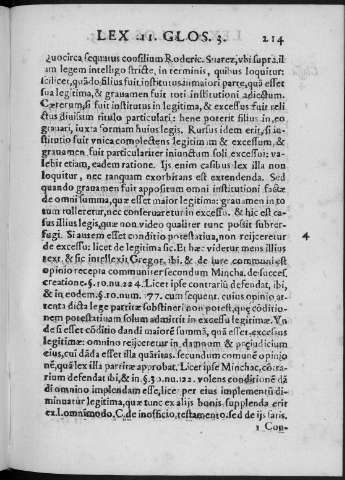 LEX .11. GLOS. 3. 214
Quocirca sequutus consilium Roderic. Suarez, vbi supra. il
lam legem intelligo stricte, in terminis, quibus loquitur:
scilicet, quādo filius fuit institutus in maiori parte, quā esset
sua legitima, & grauamen fuit toti institutioni adiectum.
Cæterum, si fuit institutus in legitima, & excessus fuit reli
ctus diuisum titulo particulari: bene poterit filius in eo
grauari, iuxta formam huius legis. Rursus idem erit, si in-
stitutio fuit vnica complectens legitimam & excessum, &
grauamen fuit particulariter iniunctum soli excessui: va-
lebit etiam, eadem ratione. Ijs enim casibus lex illa non
loquitur, nec tanquam exorbitans est extendenda. Sed
quando grauamen fuit appositum omni institutioni factæ
de omni summa, quæ esset maior legitima: grauamen in to
tum tolleretur, nec conseruaretur in excessu. & hic est ca-
sus illius legis, quæ non video qualiter tunc possit subter-
fugi. Si autem esset conditio potestatiua, non reijceretur
4
de excessu: licet de legitima sic. Et hæc videtur mens illius
text. & sic intellexit Gregor. ibi. & de iure communi est
opinio recepta communiter secundum Minchac. de succes.
creatione. §. 10. nu. 224. Licet ipse contrariū defendat, ibi,
& in eodem. §. 10. num. 177. cum sequent. cuius opinio at-
tenta dicta lege partitæ substineri non potest, quę cōditio-
nem potestatiuam solum admittit in excessu legitimæ. Vn
de si esset cōditio dandi maiorē summā, quā esset, excessus
legitimæ: omnino reijceretur in damnum & præiudicium
eius, cui dāda esset illa quātitas. secundum comunē opinio
nē, quā lex illa partitæ approbat. Licet ipse Minchac, cōtra-
rium defendat ibi, & in. §. 30. nu. 122. volens conditionē dā
di omnino implendam esse, licet per eius implementū di-
minuatur legitima, quæ tunc ex alijs bonis supplenda erit
ex. l. omnimodo. C. de inofficio. testamento. sed de ijs satis.
1 Con-